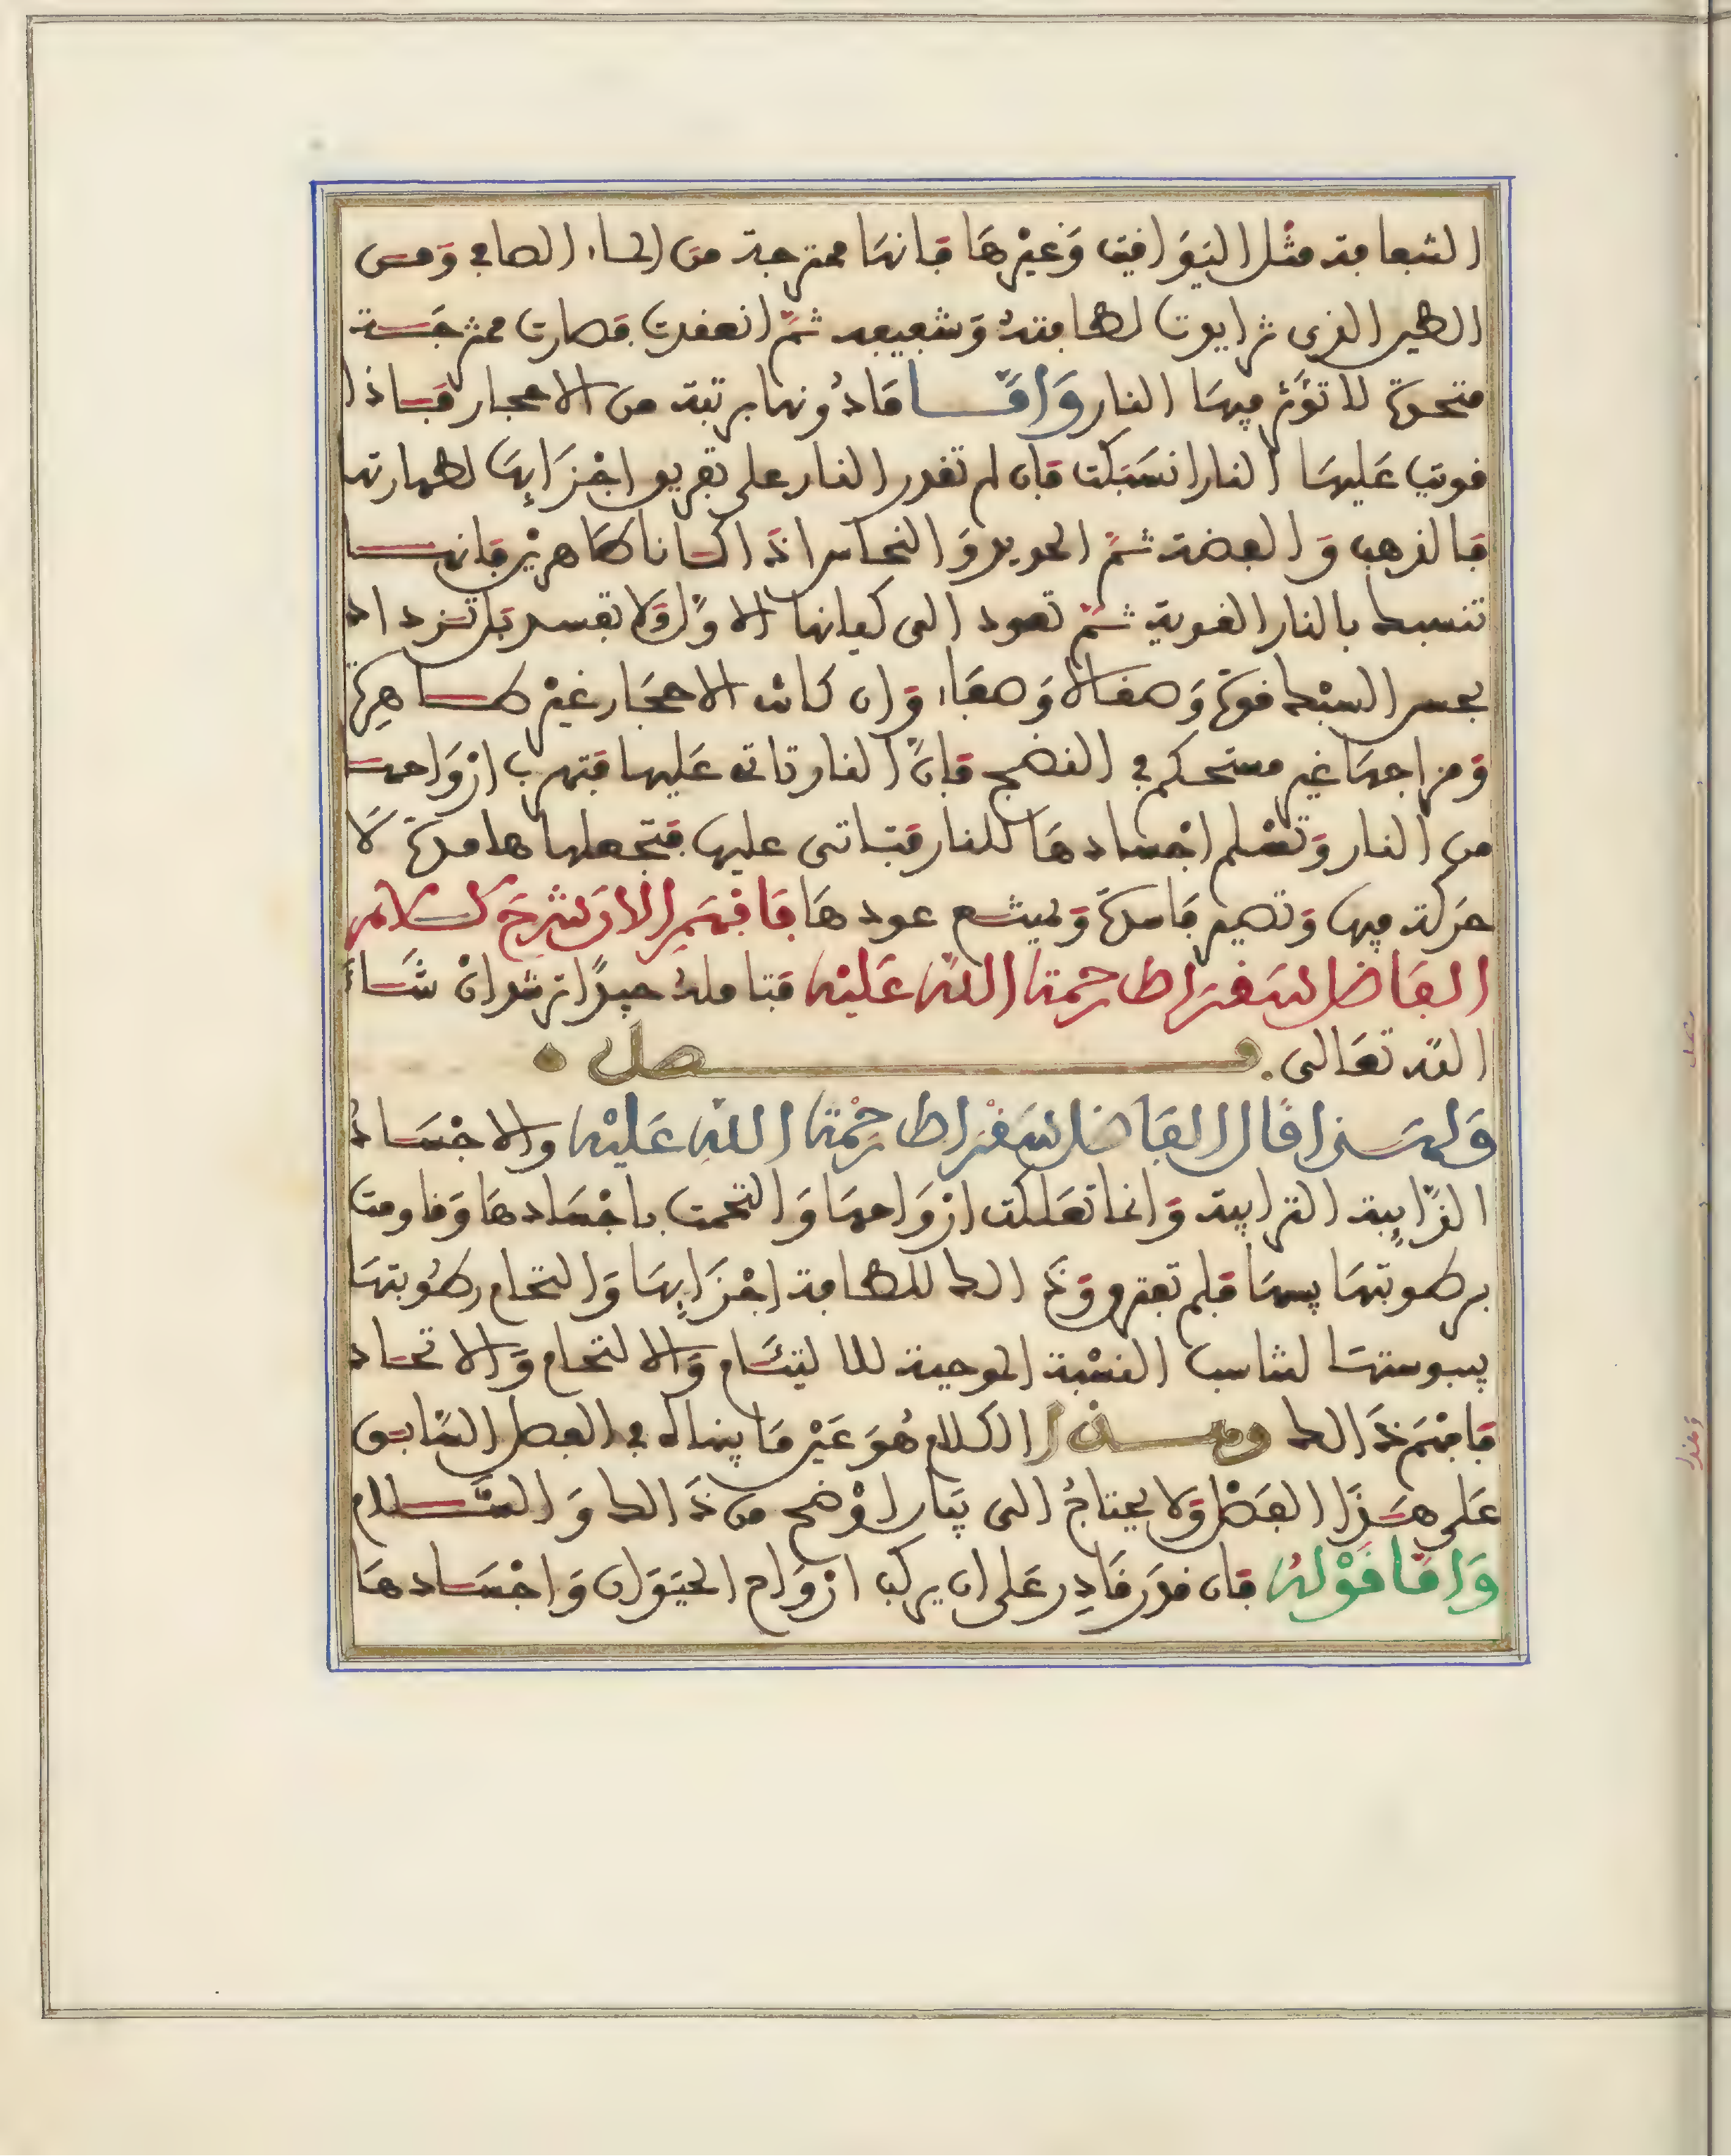 الشفافة مثل اليَوَاقيت وَغيْرهَا فانهَا ممتزجة من الماء الصافي وَمن
الطين الذى تزايدت لطافته وَشفيفه ثمّ انعقدت فصارت ممتزجة
متحدة لا تؤثر فيهَا النار وَامّا مَا دُونها برتبة من الاحجار فاذا
قويت عَليهَا النار انسَبكت فان لم تقدر النار على تفريق اجْزَايِهَا لطهارتها
فالذهب وَالفضة ثمّ الحديد وَالنحاس اذَا كانا طَاهريْن فانها
تنسبك بالنار القوية ثمّ تعود الى كيانها الاوّل وَلا تفسد بَل تزداد
بحسن السبْك قوة وَصقالا وَصفَاء وَان كانت الاحجَار غيْر طاهرة
وَمزاجهَا غير مستحكم في النضج فانّ النار تاتى عَليها فتهرب ارْوَاحها
من النار وَتسْلم اجْسادهَا للنار فتاتى عليها فتجعلها هامدة لَا
حَركة فيها وَتصير فاسدة وَيمتنع عودهَا فَافهَمِ الان شرحَ كلام
الفَاضل سَقرَاط رحمة اللّه عَليْه فتامله جيدًا ترشد انْ شَاءَ
اللّه تعَالى. فصل
وَلهَذا قَال الفَاضل سَقرَاط رحْمة اللّه عَليْه والاجْسَادُ
الذّايِبة الترابية وَانما تعَلكت ارْوَاحهَا وَالتحمت باجْسَادهَا وَقاومت
برطوبتهَا يبسهَا فلم تفترق وَذَالك للطافة اجْزَايِهَا وَالتحام رطُوبتهَا
بيبوستهَا لتناسب النسْبة الموجبة للالتيَام وَالالتحام وَالاتحاد
فافهَم ذَالك وهذا الكلام هُوَ عَيْن مَا بيناه في الفصل السّابق
عَلى هَذَا الفَصْل وَلا يحتاجُ الى بَيَان اوْضح من ذَالك وَالسّلام
وَامّا قَوْلهُ فان قدَر قَادِر عَلى ان يركب ارْوَاح الحيَوان وَاجْسَادهَا